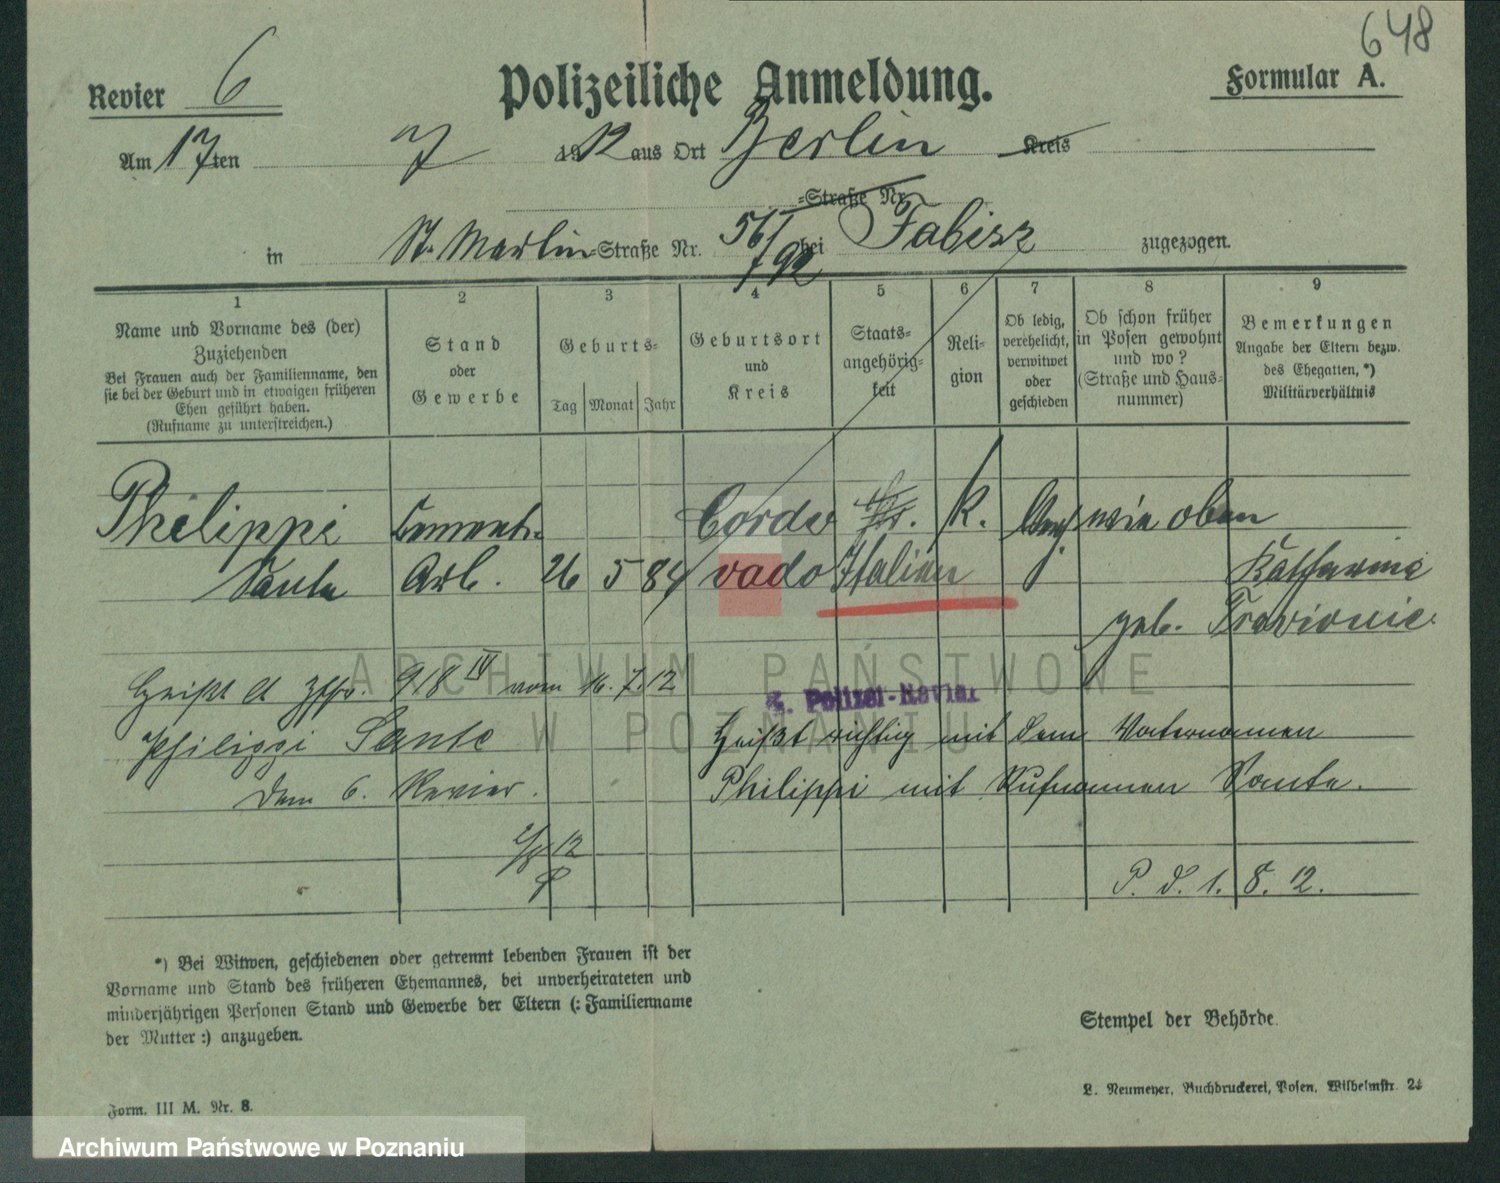 648
Revier 6
Polizeiliche Anmeldung.
Formular A.
Am 17ten 7 1912 aus Ort Berlin Kreis
=Straße Nr.
in St. Martin=Straße Nr. 56/ bei Fabisz zugezogen.
92
1 2 3 4 5 6 7 8 9
Name und Vorname des (der)
Zuziehenden
Bei Frauen auch der Familienname, den
sie bei der Geburt und in etwaigen früheren
Ehen geführt haben.
(Rufname zu unterstreichen.)
Stand
oder
Gewerbe
Geburts=
Tag Monat Jahr
Geburtsort
und
Kreis
Staats=
angehörig=
keit
Reli=
gion
Ob ledig,
verehelicht,
verwitwet
oder
geschieden
Ob schon früher
in Posen gewohnt
und wo?
(Straße und Haus=
nummer)
Bemerkungen
Angabe der Eltern bezw.
des Ehegatten, *)
Militärverhältnis
Philippi Cement= Cordo K. wie oben
Sante Arb. 26 5 84 vado Italien Katharina
geb.
Heißt lt 918 IV vom 16.7.12
6. Polizei-Revier
Philippi Sante Heißt richtig mit dem Vaternamen
Dem 6. Revier. Philippi mit Rufnamen Sante.
2/8 12
P. d. 1. 8. 12.
*) Bei Witwen, geschiedenen oder getrennt lebenden Frauen ist der
Vorname und Stand des früheren Ehemannes, bei unverheirateten und
minderjährigen Personen Stand und Gewerbe der Eltern (: Familienname
der Mutter :) anzugeben.
Stempel der Behörde.
L. Neumeyer, Buchdruckerei, Posen, Wilhelmstr. 24
Form. III M. Nr. 8.
ARCHIWUM PAŃSTWOWE
W POZNANIU
Archiwum Państwowe w Poznaniu